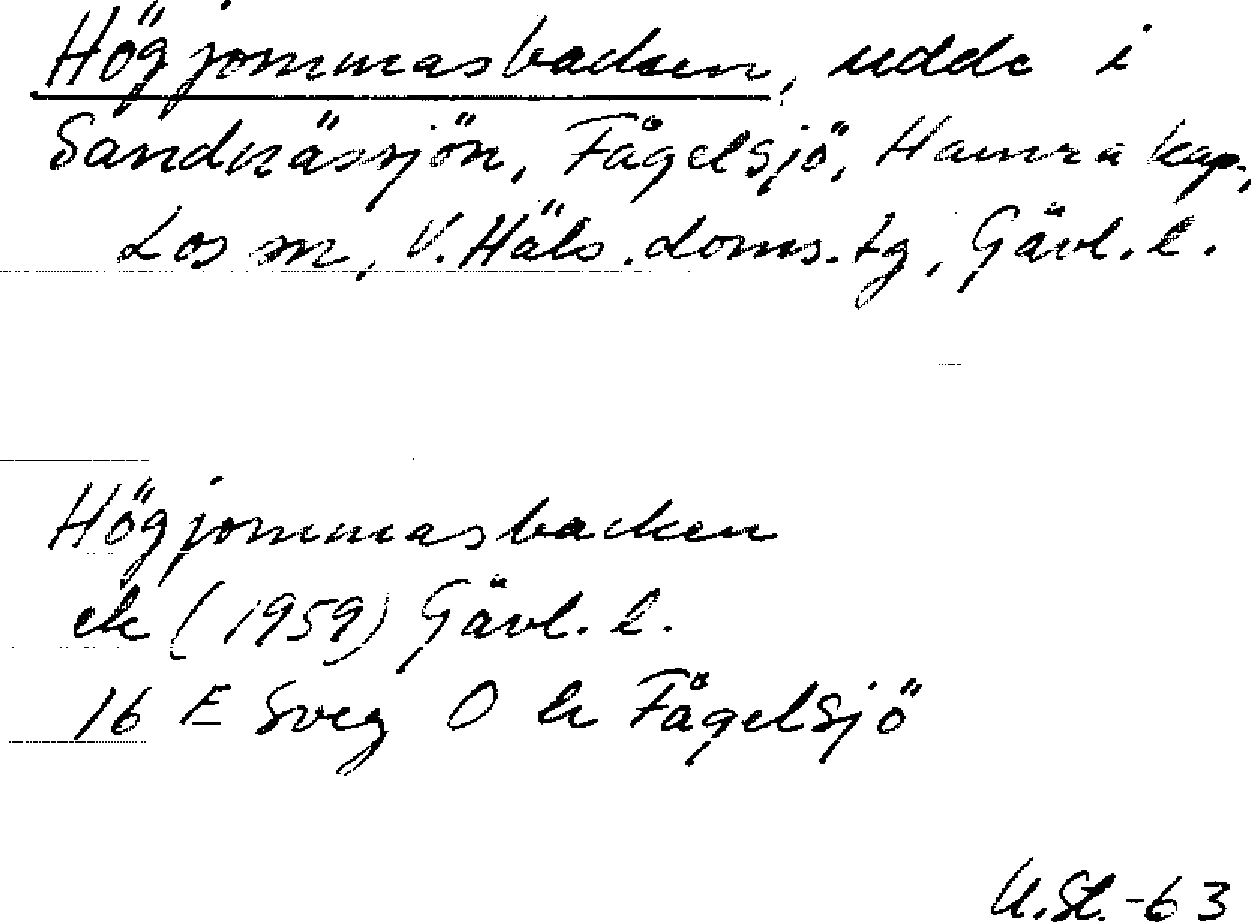 Högjommasbacken, udde i
Sandnässjön, Fågelsjö, Hamra kap.,
Los sn, V. Häls. doms. tg, Gävl. l.
Högjommasbacken
ek (1959) Gävl. l.
16 E Sveg O h Fågelsjö
U. St. -63